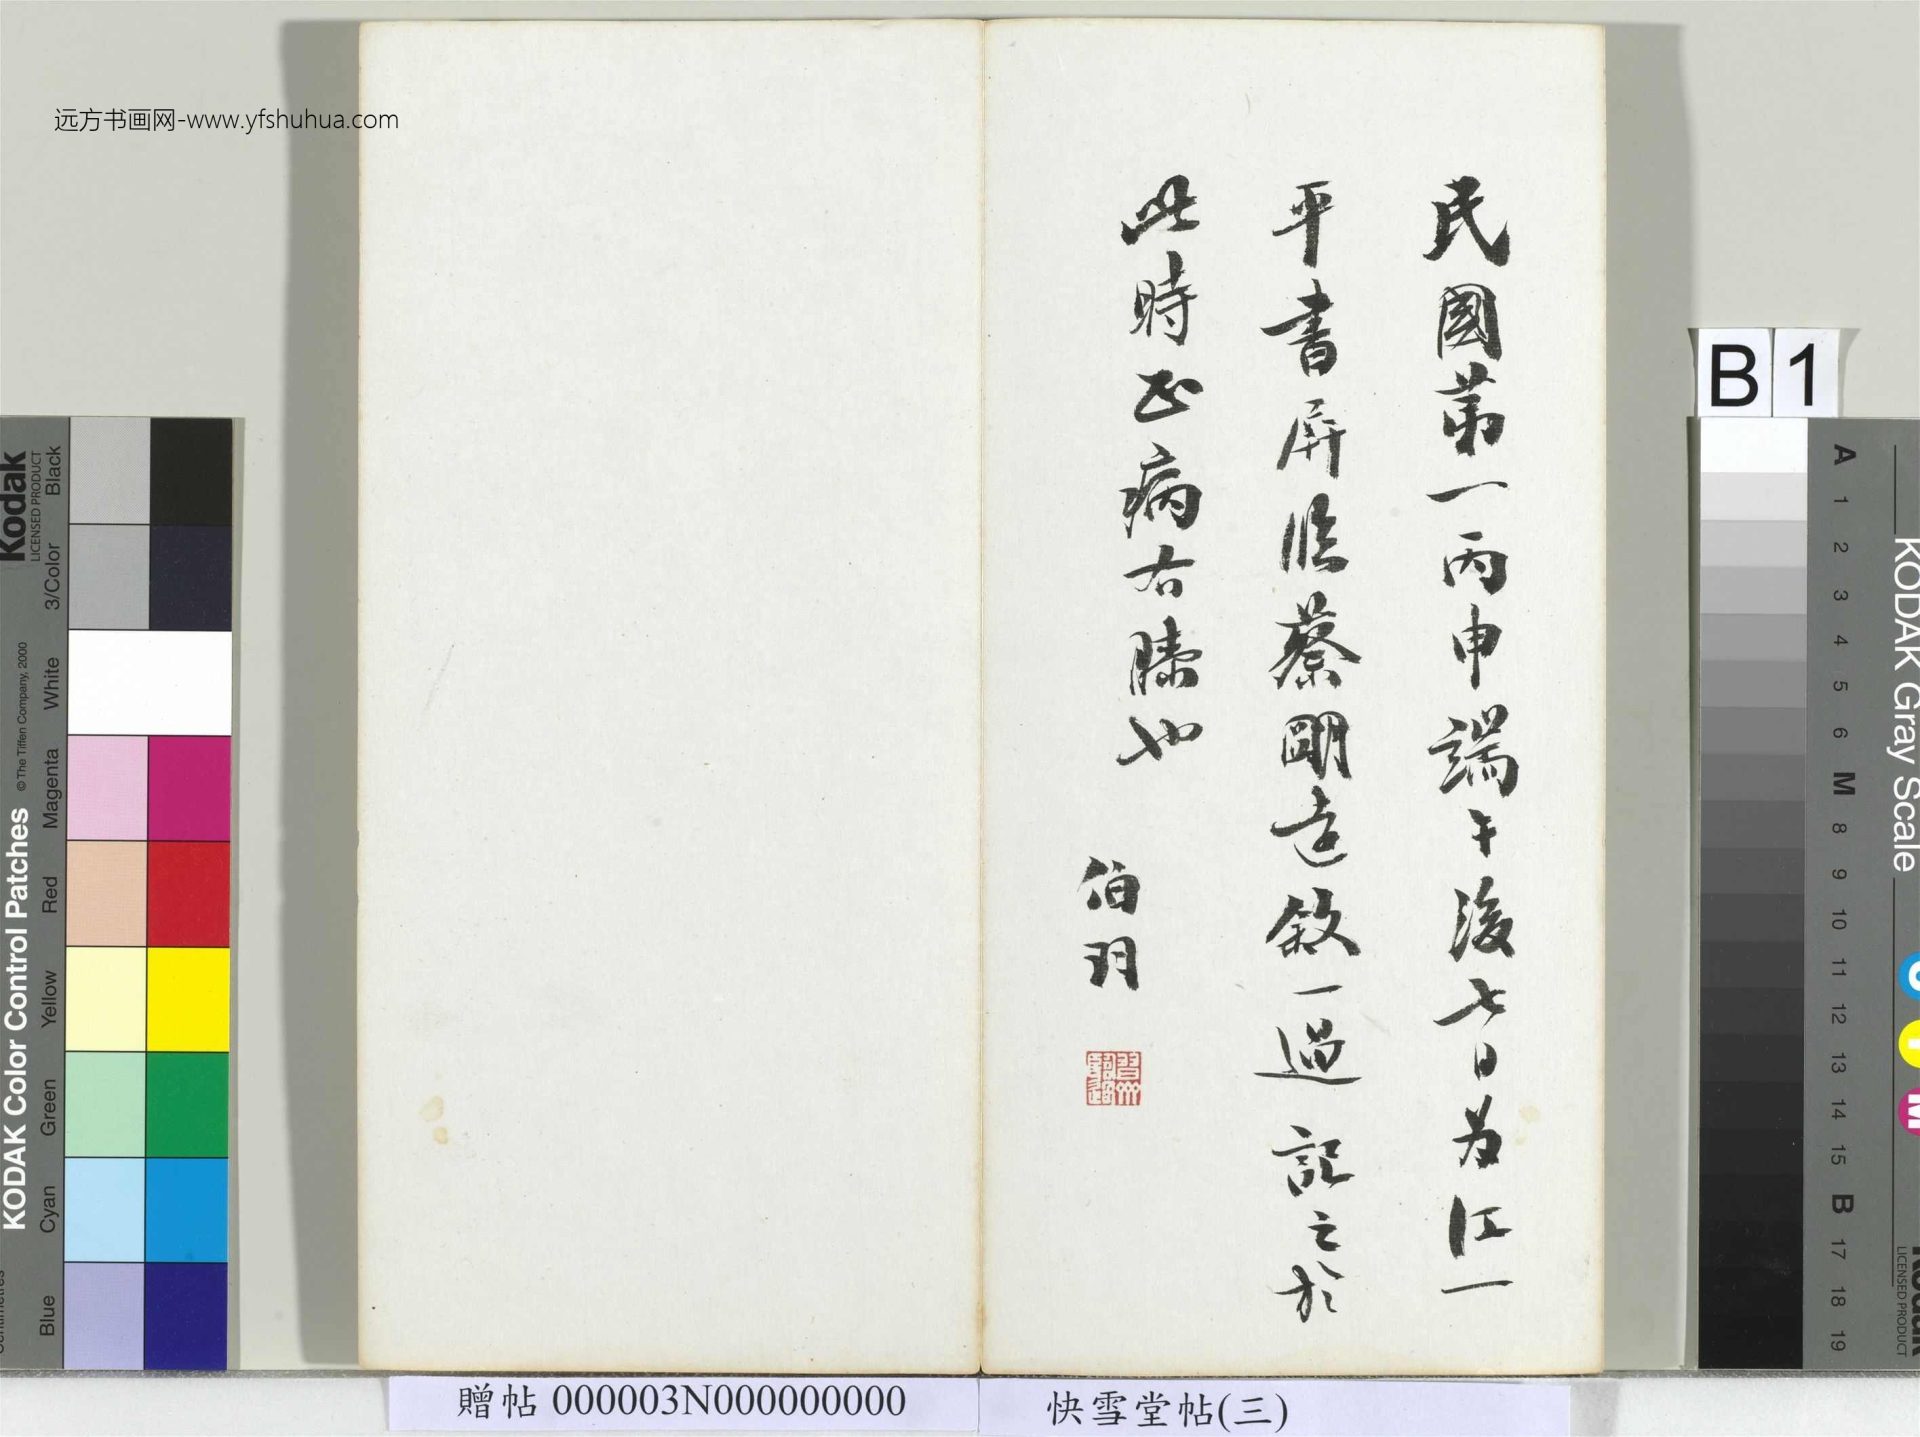 远方书画网-www.yfshuhua.com
民國第一丙申端午後七日為江一
平書屏臨蔡明遠敘一過記之於
此時正病右膝也
伯羽
贈帖 000003N000000000
快雪堂帖(三)
B 1
Kodak
LICENSED PRODUCT
Black
3/Color
White
Magenta
Red
Yellow
Green
Cyan
Blue
KODAK Color Control Patches
©The Tiffen Company, 2000
KODAK Gray Scale
A 1 2 3 4 5 6 M 8 9 10 11 12 13 14 15 B 17 18 19
LICENSED PRODUCT